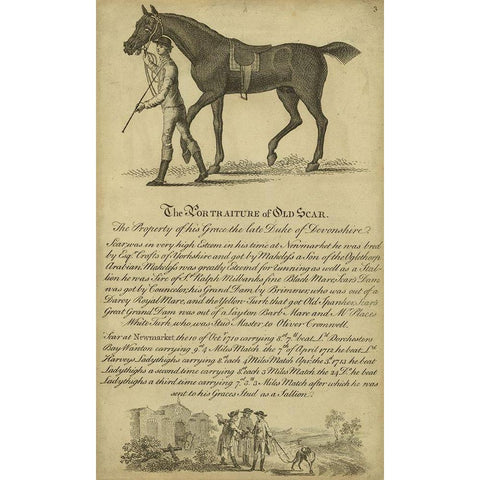 3
The PORTRAITURE of OLD SCAR.
The Property of his Grace the late Duke of Devonshire.
Scar was in very high Esteem in his time at Newmarket he was bred
by Esq. Crofts of Yorkshire and got by Makeless a Son of the Oglethorp
Arabian, Makeless was greatly Esteemd for running as well as a Stal-
lion he was Sire of Sr. Ralph Milbanks fine Black Mare, Scar's Dam
was got by Councelor, his Grand Dam by Brimmer, who was out of a
Darcy Royal Mare, and the Yellow Turk that got Old Spanker, Scar's
Great Grand Dam was out of a Layton Barb Mare and Mr. Places
White Turk, who was Stud Master to Oliver Cromwell.
Scar at Newmarket, the 10 of Oct. 1710 carrying 8st. 7lb. beat Ld. Dorchesters
Bay Wanton carrying 9st. 4 Miles Match the 7th of April 1712, he beat Ld.
Harveys Ladythighs carrying 8st. each 4 Miles Match Apr. the 3d. 1713 he beat
Ladythighs a second time carrying 8st. each 3 Miles Match, the 24 Do. he beat
Ladythighs a third time carrying 7st. 3. 3 Miles Match after which he was
sent to his Graces Stud as a Stallion.